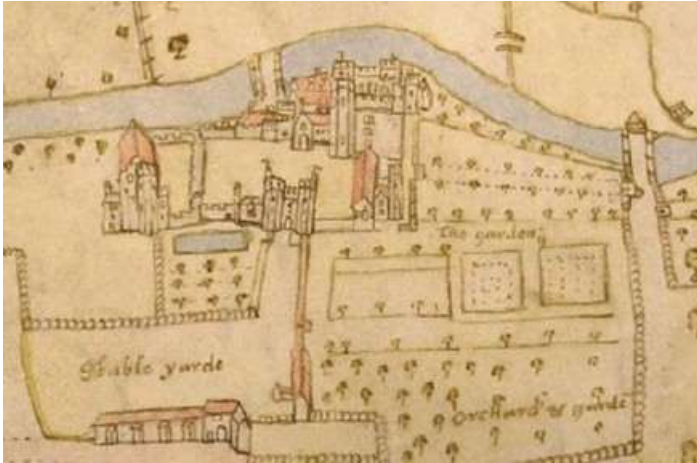 The garden
Stable yarde
Orchard & garde